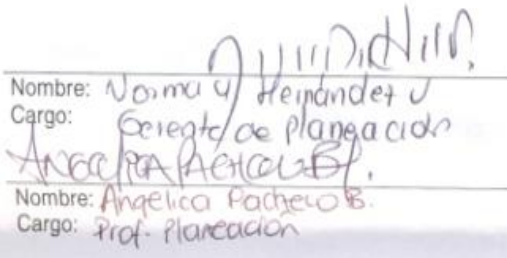 Nombre: Norma y Hernández J
Cargo: Gerente de Planeación
ANGELICA PACHECO B.
Nombre: Angelica Pacheco B.
Cargo: Prof. Planeación